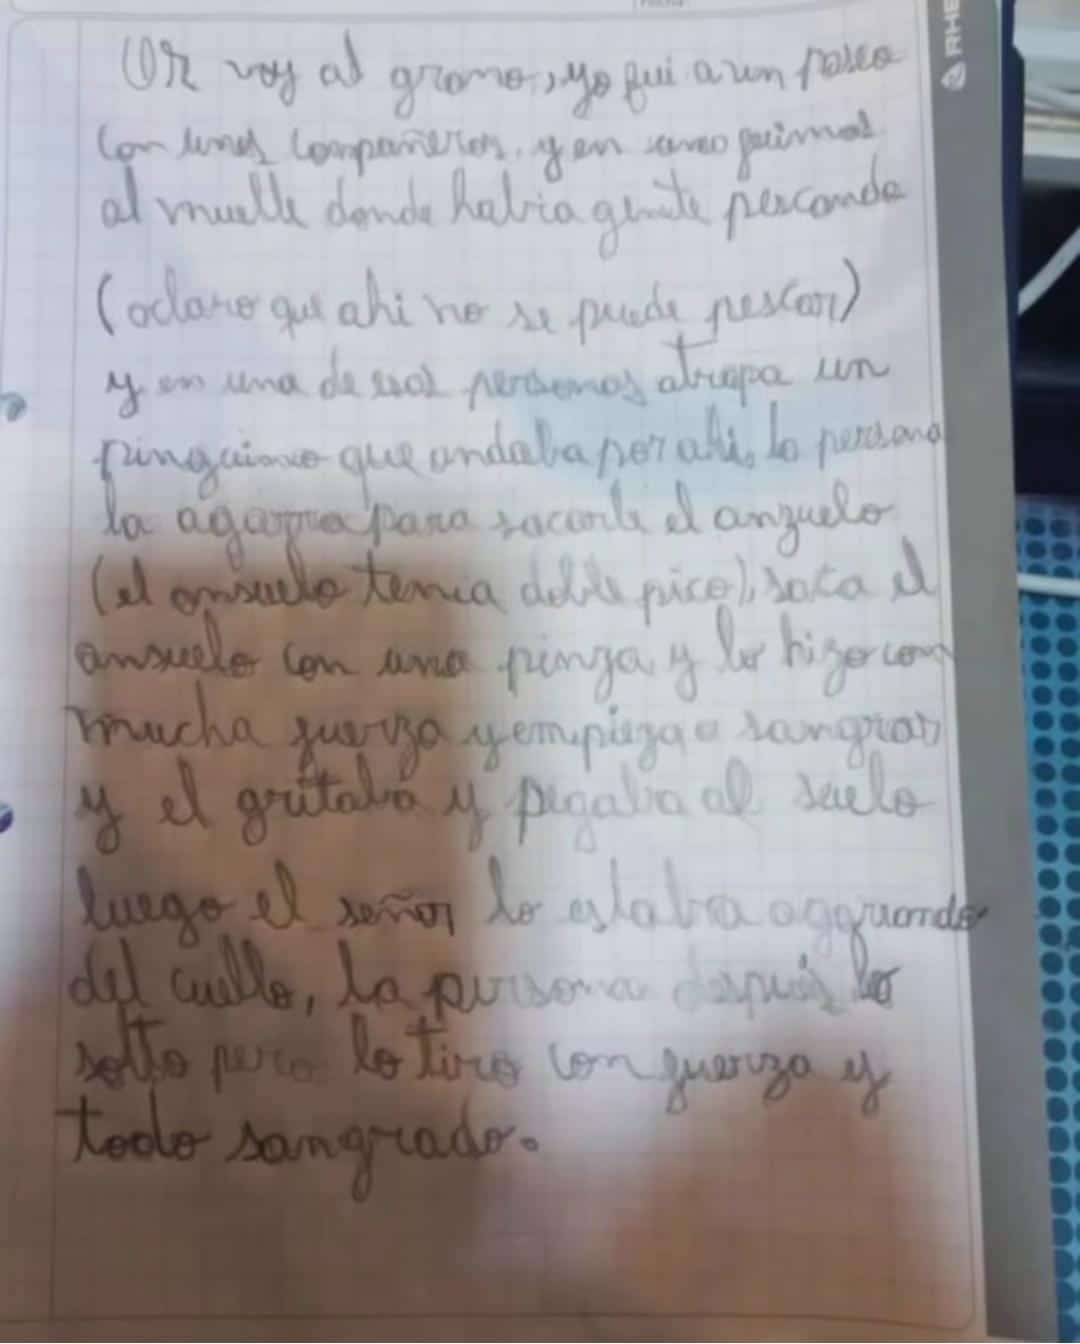 Ok voy al grano, yo fui a un paseo
con unos compañeros, y en eso fuimos
al muelle donde habia gente pescando
(aclaro que ahi no se puede pescar)
y en una de esas personas atrapa un
pinguino que andaba por ahi, la persona
la agarra para sacarle el anzuelo
(el ansuelo tenia doble pico), saca el
ansuelo con una pinza y lo hizo con
mucha fuerza y empieza a sangrar
y el gritaba y pegaba al suelo
luego el señor lo estaba agarrando
del cuello, la persona después lo
solto pero lo tiro con fuerza y
todo sangrado.
RHE